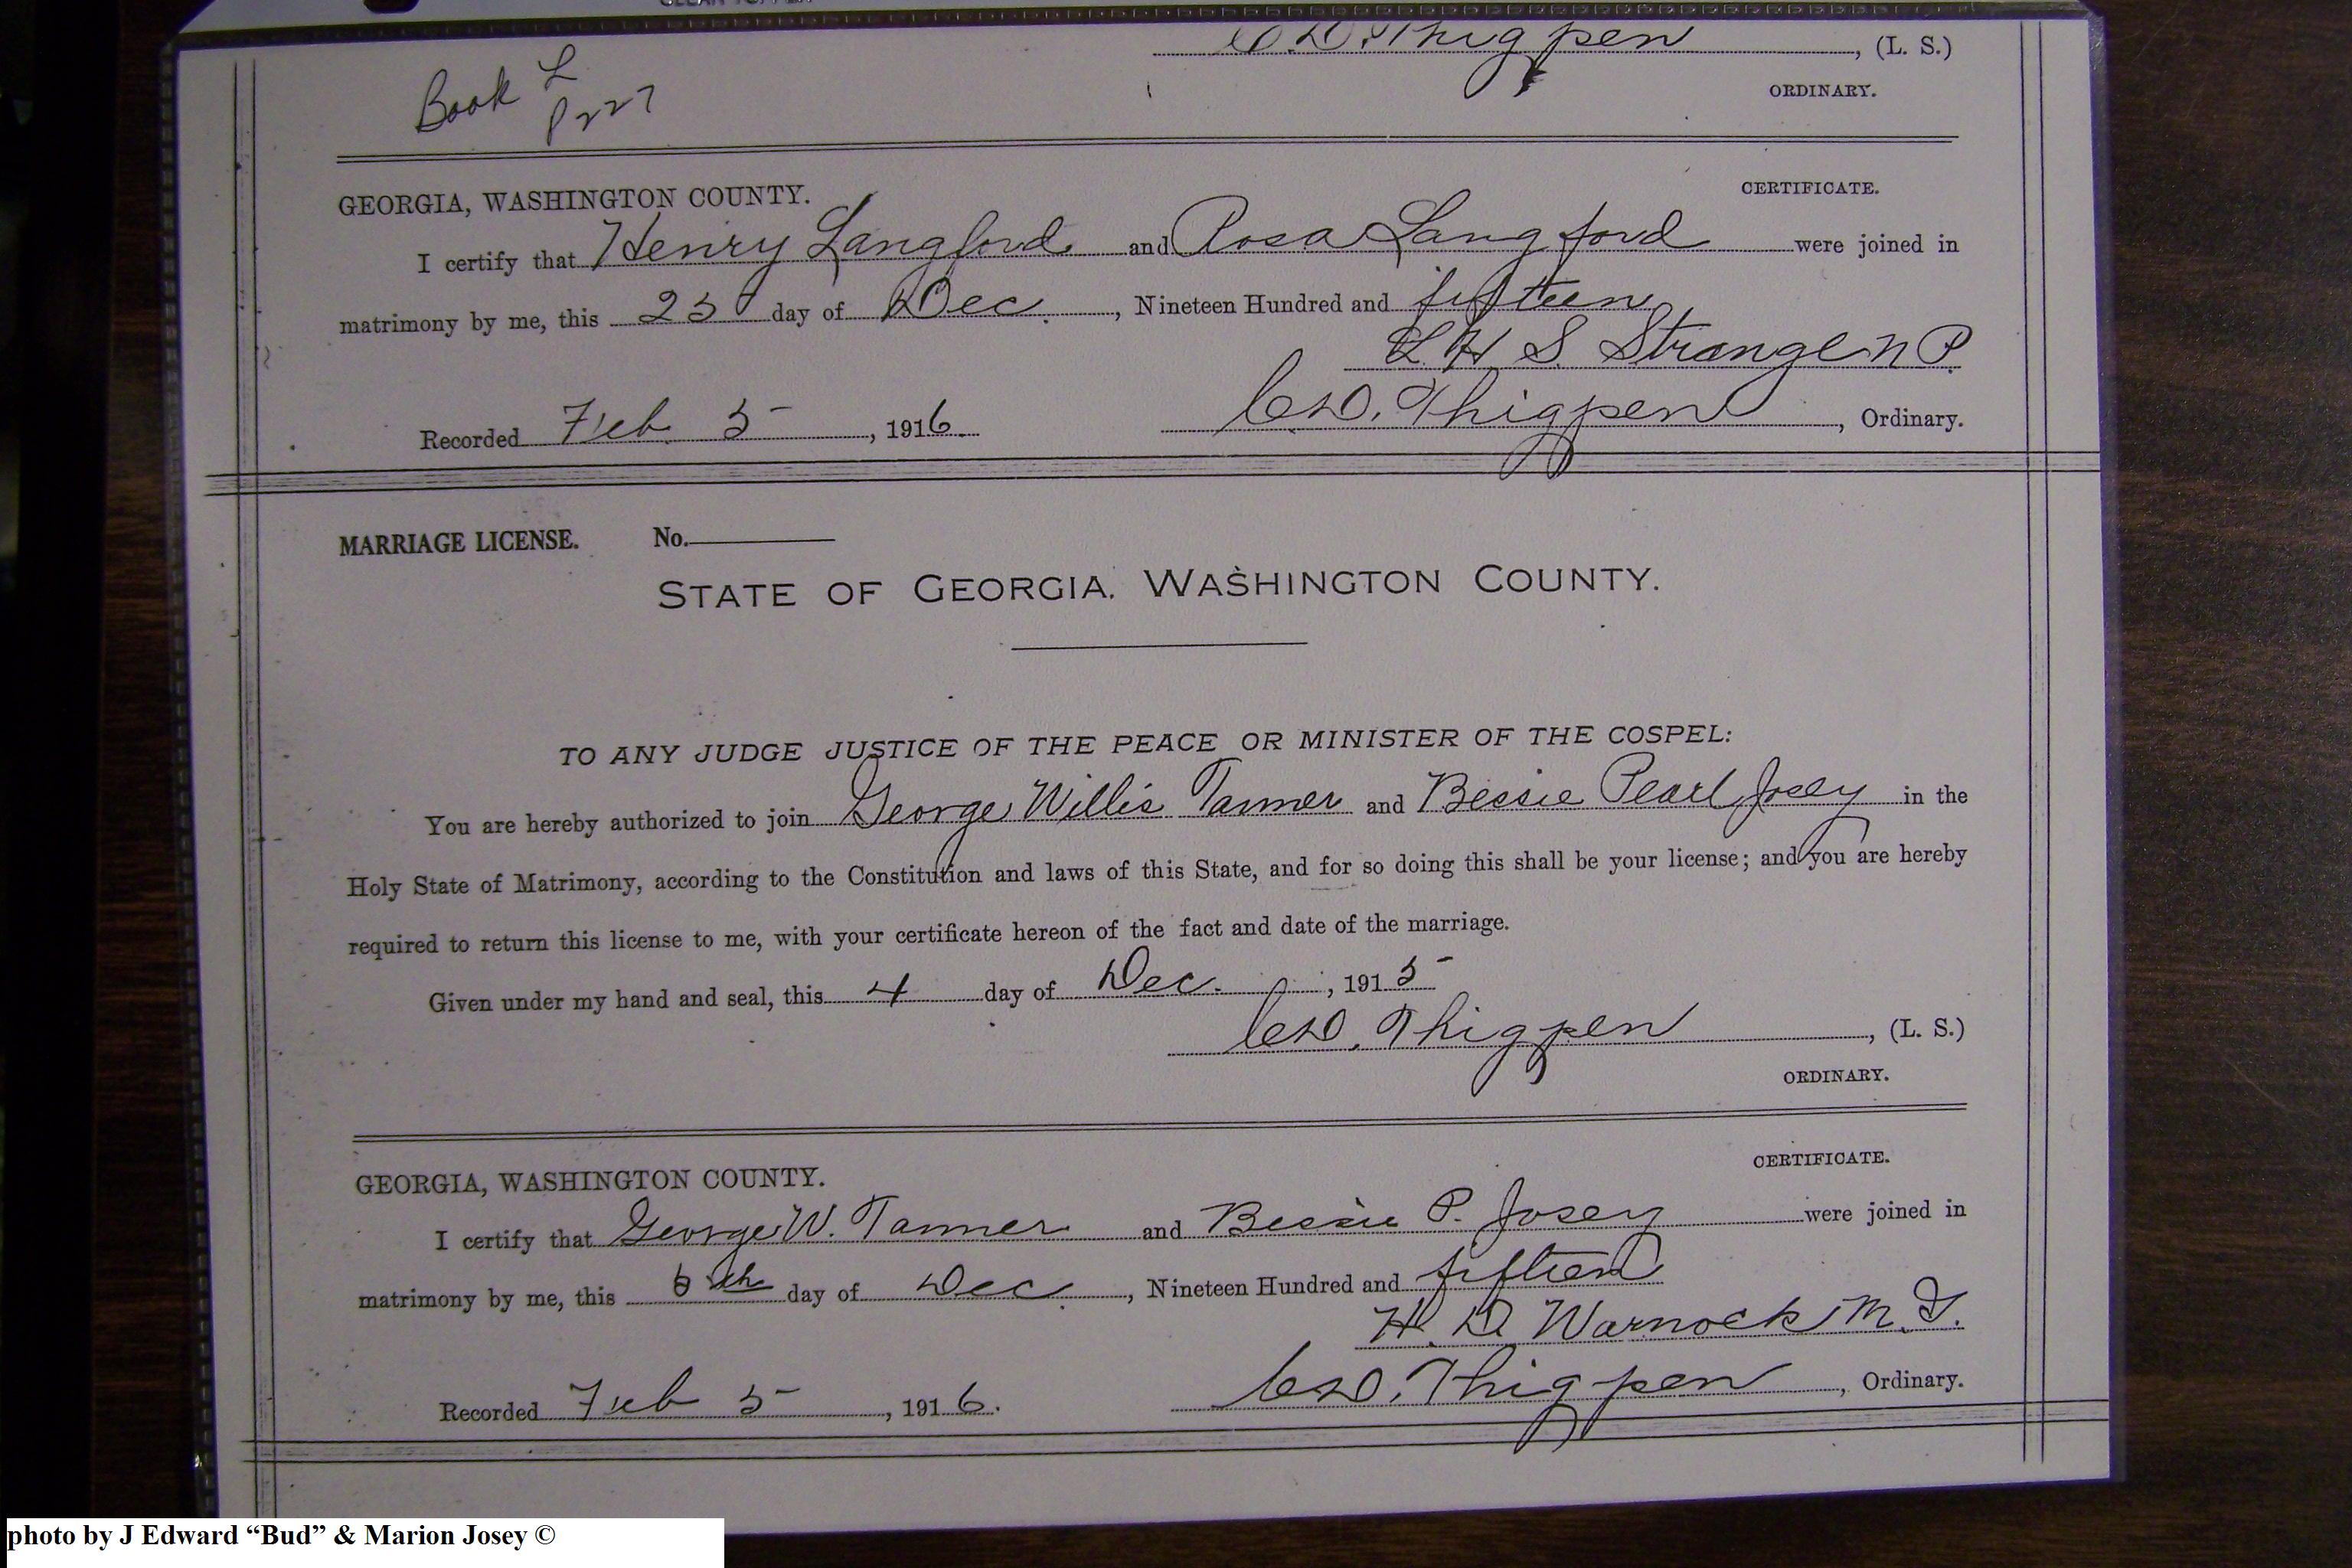 C. D. Thigpen, (L. S.)
Book L
P 227
ORDINARY.
CERTIFICATE.
GEORGIA, WASHINGTON COUNTY.
I certify that Henry Langford and Rosa Langford were joined in
matrimony by me, this 25 day of Dec., Nineteen Hundred and fifteen
L. H. S. Strange N P.
Recorded Feb 5, 1916 C. D. Thigpen, Ordinary.
MARRIAGE LICENSE. No.
STATE OF GEORGIA. WASHINGTON COUNTY.
TO ANY JUDGE JUSTICE OF THE PEACE OR MINISTER OF THE COSPEL:
You are hereby authorized to join George Willis Tanner and Bessie Pearl Josey in the
Holy State of Matrimony, according to the Constitution and laws of this State, and for so doing this shall be your license; and you are hereby
required to return this license to me, with your certificate hereon of the fact and date of the marriage.
Given under my hand and seal, this 4 day of Dec., 1915
C. D. Thigpen, (L. S.)
ORDINARY.
CERTIFICATE.
GEORGIA, WASHINGTON COUNTY.
I certify that George W. Tanner and Bessie P. Josey were joined in
matrimony by me, this th day of Dec., Nineteen Hundred and fifteen
H. D. Warnock M. G.
Recorded Feb 5, 1916. C. D. Thigpen, Ordinary.
photo by J Edward “Bud” & Marion Josey ©